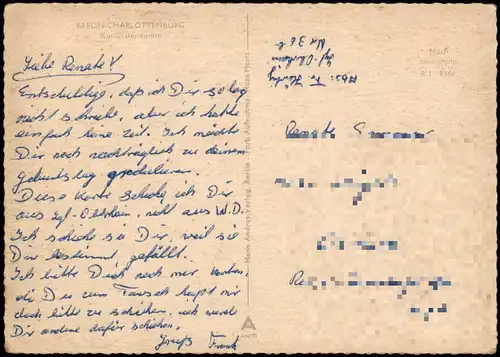 BERLIN-CHARLOTTENBURG
Kurfürstendamm
Liebe Renate!
Entschuldige, daß ich Dir so lang
nicht schreibe, aber ich hatte
einfach keine Zeit. Ich möchte
Dir noch nachträglich zu deinem
Geburtstag gratulieren.
Diese Karte schicke ich Dir
aus Igl-Obstheim, nicht aus W.D.
Ich schicke sie Dir, weil sie
Dir bestimmt gefällt.
Ich bitte Dich noch mir, Karten,
die Du zum Tausch hast mir
doch bitte zu schicken, ich werd
Dir andere dafür schicken.
Gruß Frank
Hans Andres Verlag, Berlin Farb-Aufnahme: Hans Horn
Abs: F.
Nr 36
Mech.
B 1 8366
Renate